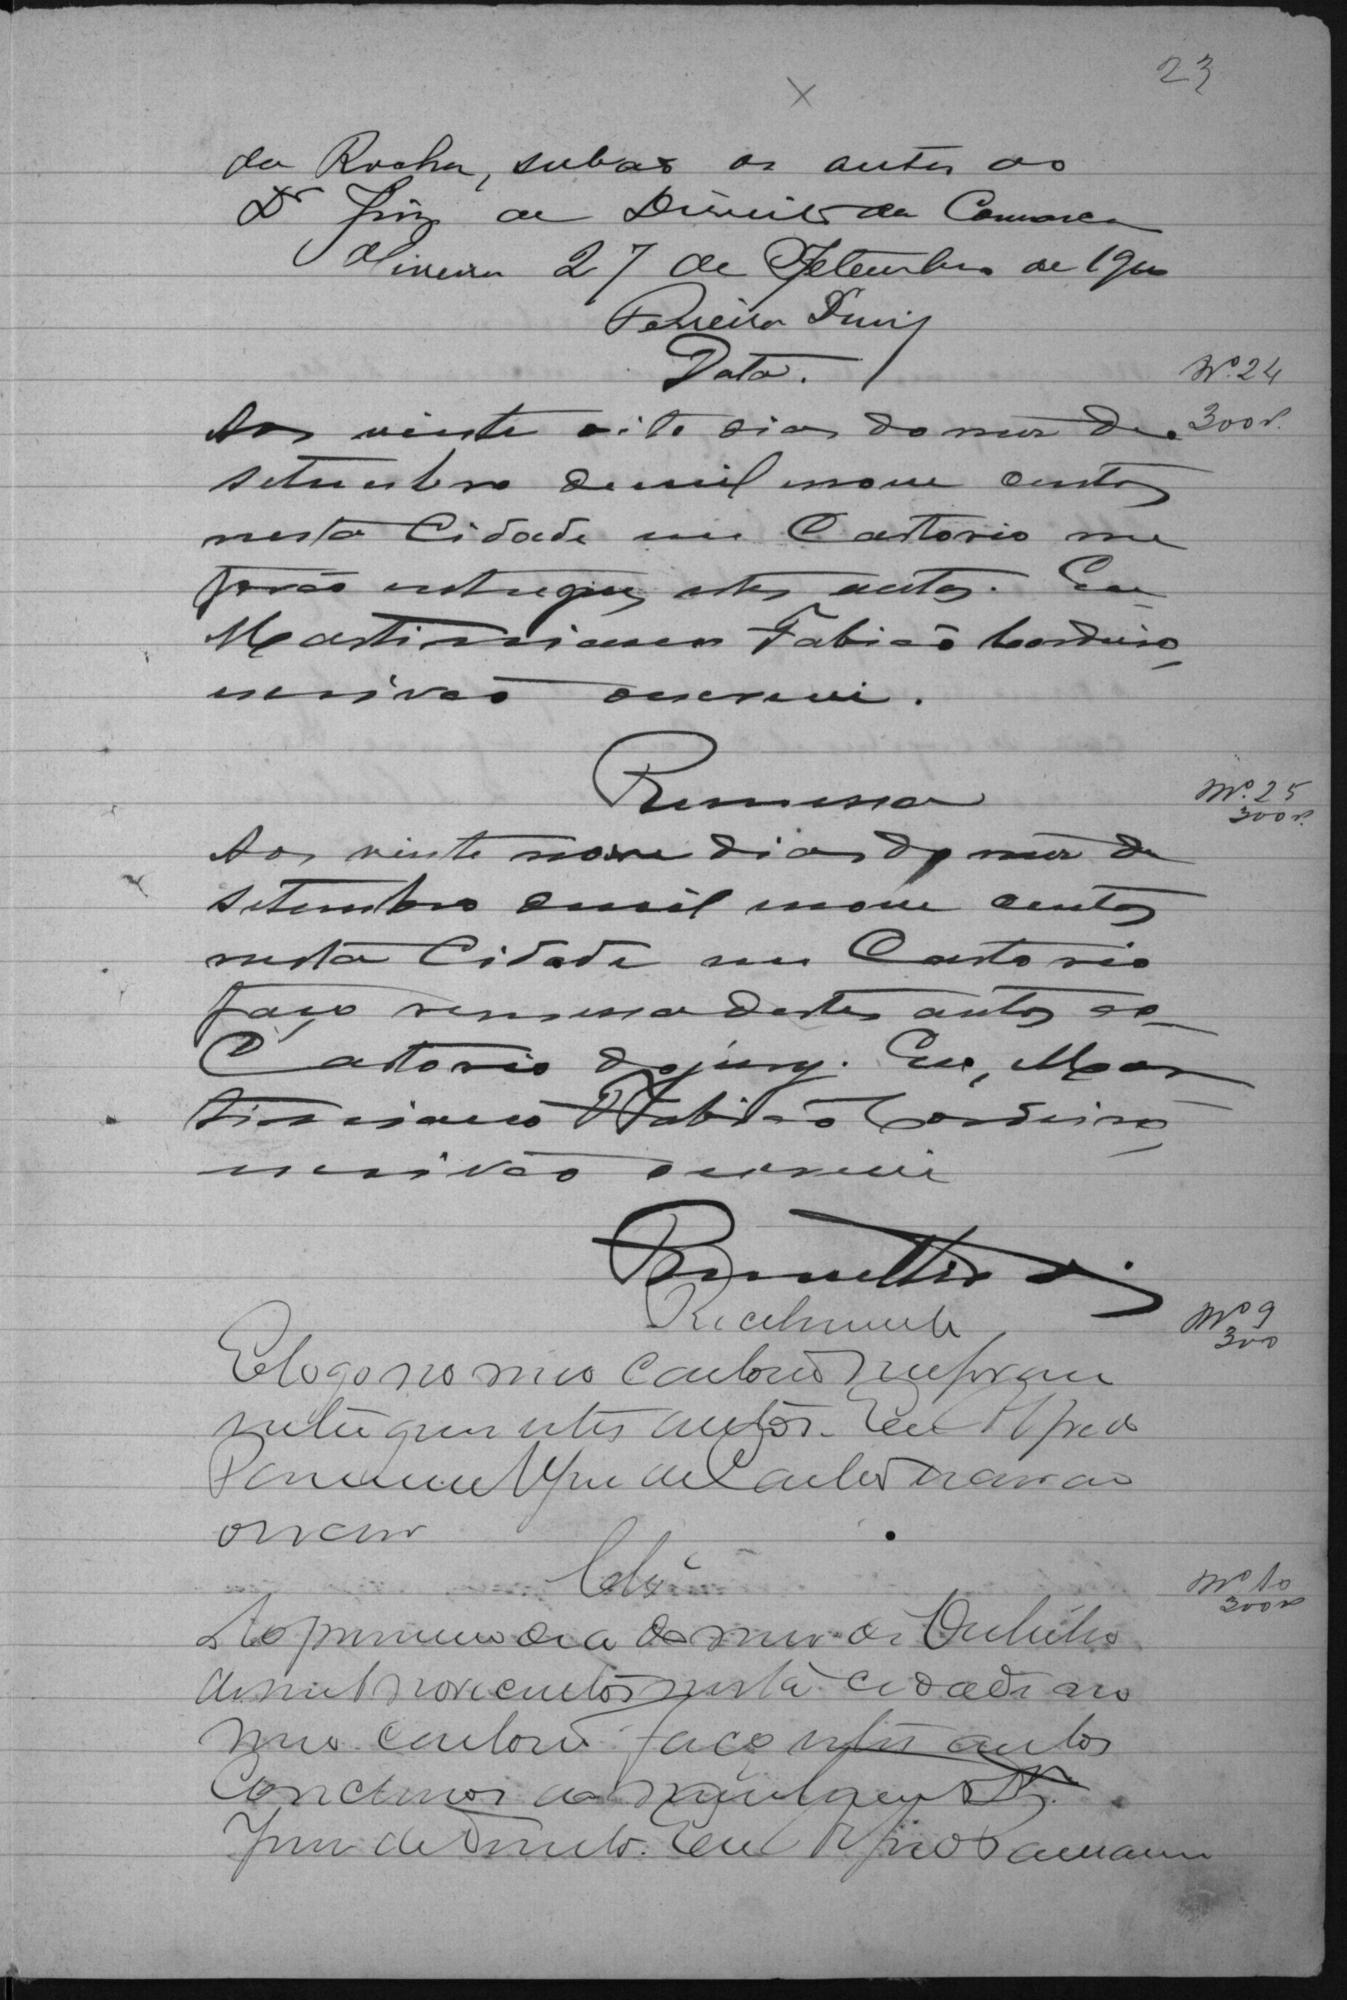 23
da Rocha, subão os autos ao
Dr Juiz de Direito da Comarca
Oliveira 27 de Setembro de 1900
Ferreira Diniz
Data.
Nº 24
300 r.
Aos vinte oito dias do mez de
setembro de mil nove centos
nesta Cidade em Cartorio me
forão entregues estes autos. Eu
Martiniano Fabião Cordeiro,
escrivão escrevi.
Remessa
Nº 25
300 r.
Aos vinte nove dias do mez de
setembro de mil nove centos
nesta Cidade em Cartorio
faço remessa destes autos ao
Cartorio do jury. Eu, Mar
tiniano Fabião Cordeiro,
escrivão escrevi
Remettidos
Recebimento
Nº 9
300
E logo no meo cartorio me foram
entregues estes autos. Eu
de Castro escrivão
escrevi
Clsº
Nº 10
300 r
Ao primeiro dia do mez de Outubro
de mil novecentos nesta cidade no
meo cartorio faço estes autos
Conclusos ao Dr.
Juiz de Direito. Eu